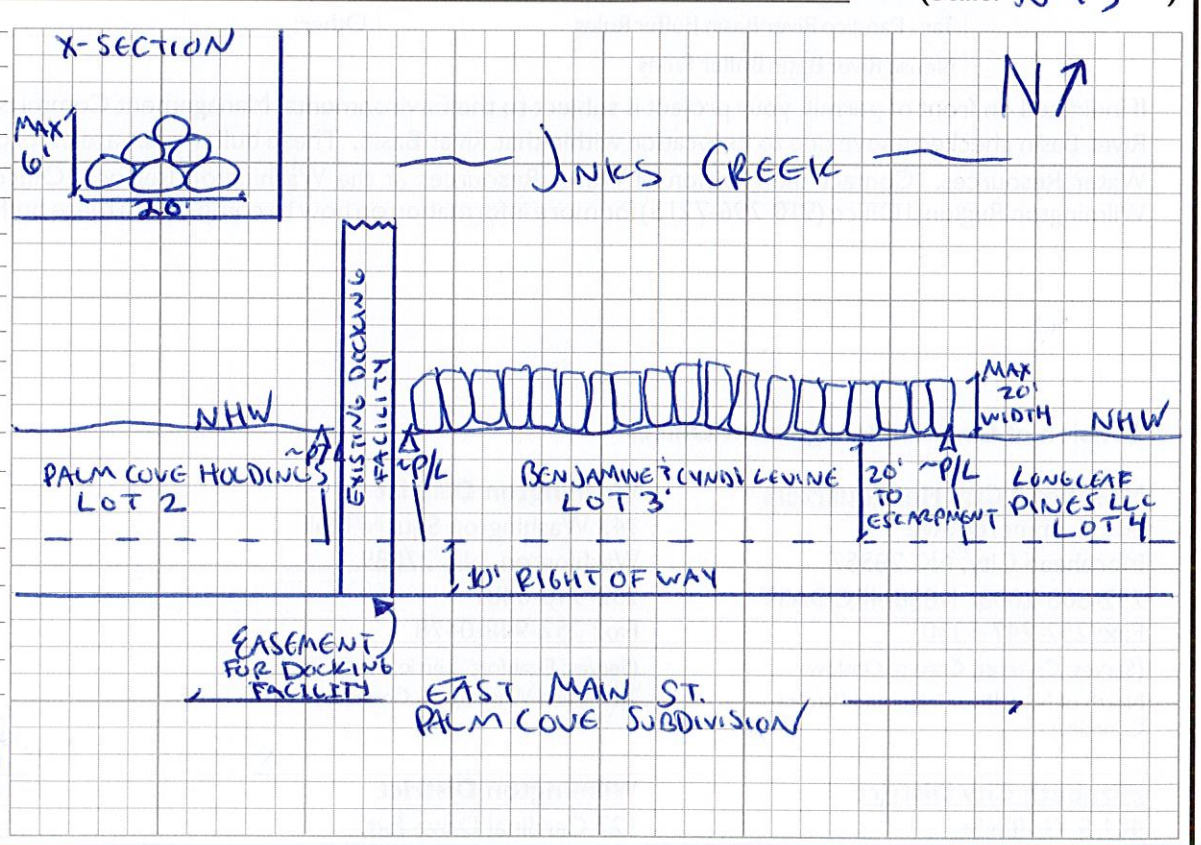 X-SECTION
MAX
6'
20'
N
JINKS CREEK
EXISTING DOCKING
FACILITY
MAX
20'
WIDTH
NHW
NHW
~P/L
~P/L
~P/L
PALM COVE HOLDINGS
LOT 2
BENJAMINE & CYNDI LEVINE
LOT 3
20'
TO
ESCARPMENT
LONGLEAF
PINES LLC
LOT 4
10' RIGHT OF WAY
EASEMENT
FOR DOCKING
FACILITY
EAST MAIN ST.
PALM COVE SUBDIVISION